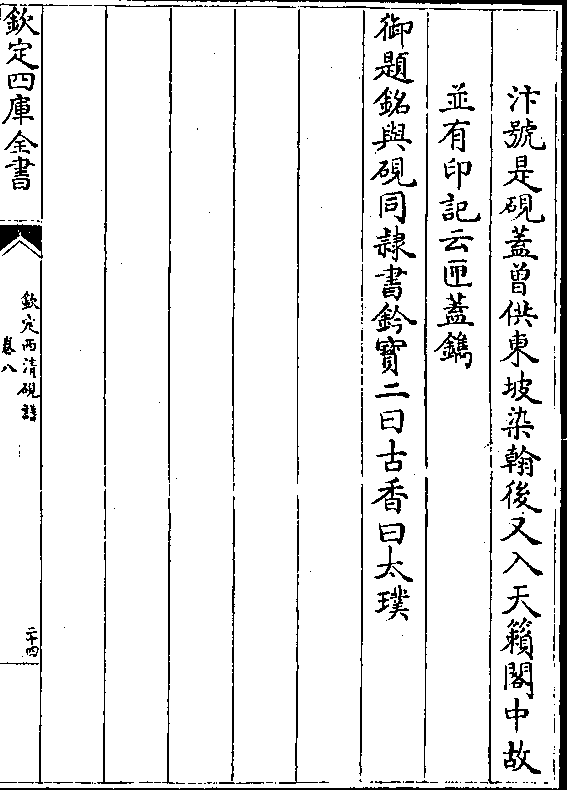 汴號是硯蓋曽供東坡染翰後又入天籟閣中故
並有印記云匣蓋鐫
御題銘與硯同隷書鈐寳二曰古香曰太璞
欽定四庫全書
欽定西清硯譜
卷八
二十四